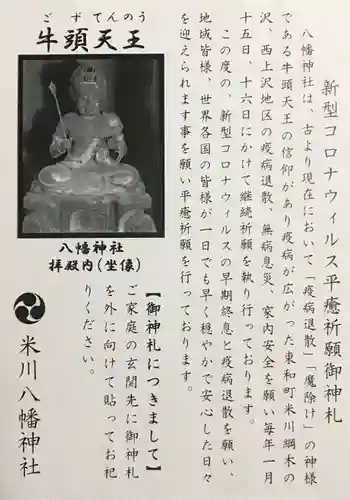 新型コロナウィルス平癒祈願御神札
八幡神社は、古より現在において「疫病退散」「魔除け」の神様
である牛頭天王の信仰があり疫病が広がった東和町米川綱木の
沢、西上沢地区の疫病退散、無病息災、家内安全を願い毎年一月
十五日、十六日にかけて継続祈願を執り行っております。
この度の、新型コロナウィルスの早期終息と疫病退散を願い、
地域皆様、世界各国の皆様が一日でも早く穏やかで安心した日々
を迎えられます事を願い平癒祈願を行っております。
ごずてんのう
牛頭天王
八幡神社
拝殿内(坐像)
【御神札につきまして】
ご家庭の玄関先に御神札
を外に向けて貼ってお祀
りください。
米川八幡神社